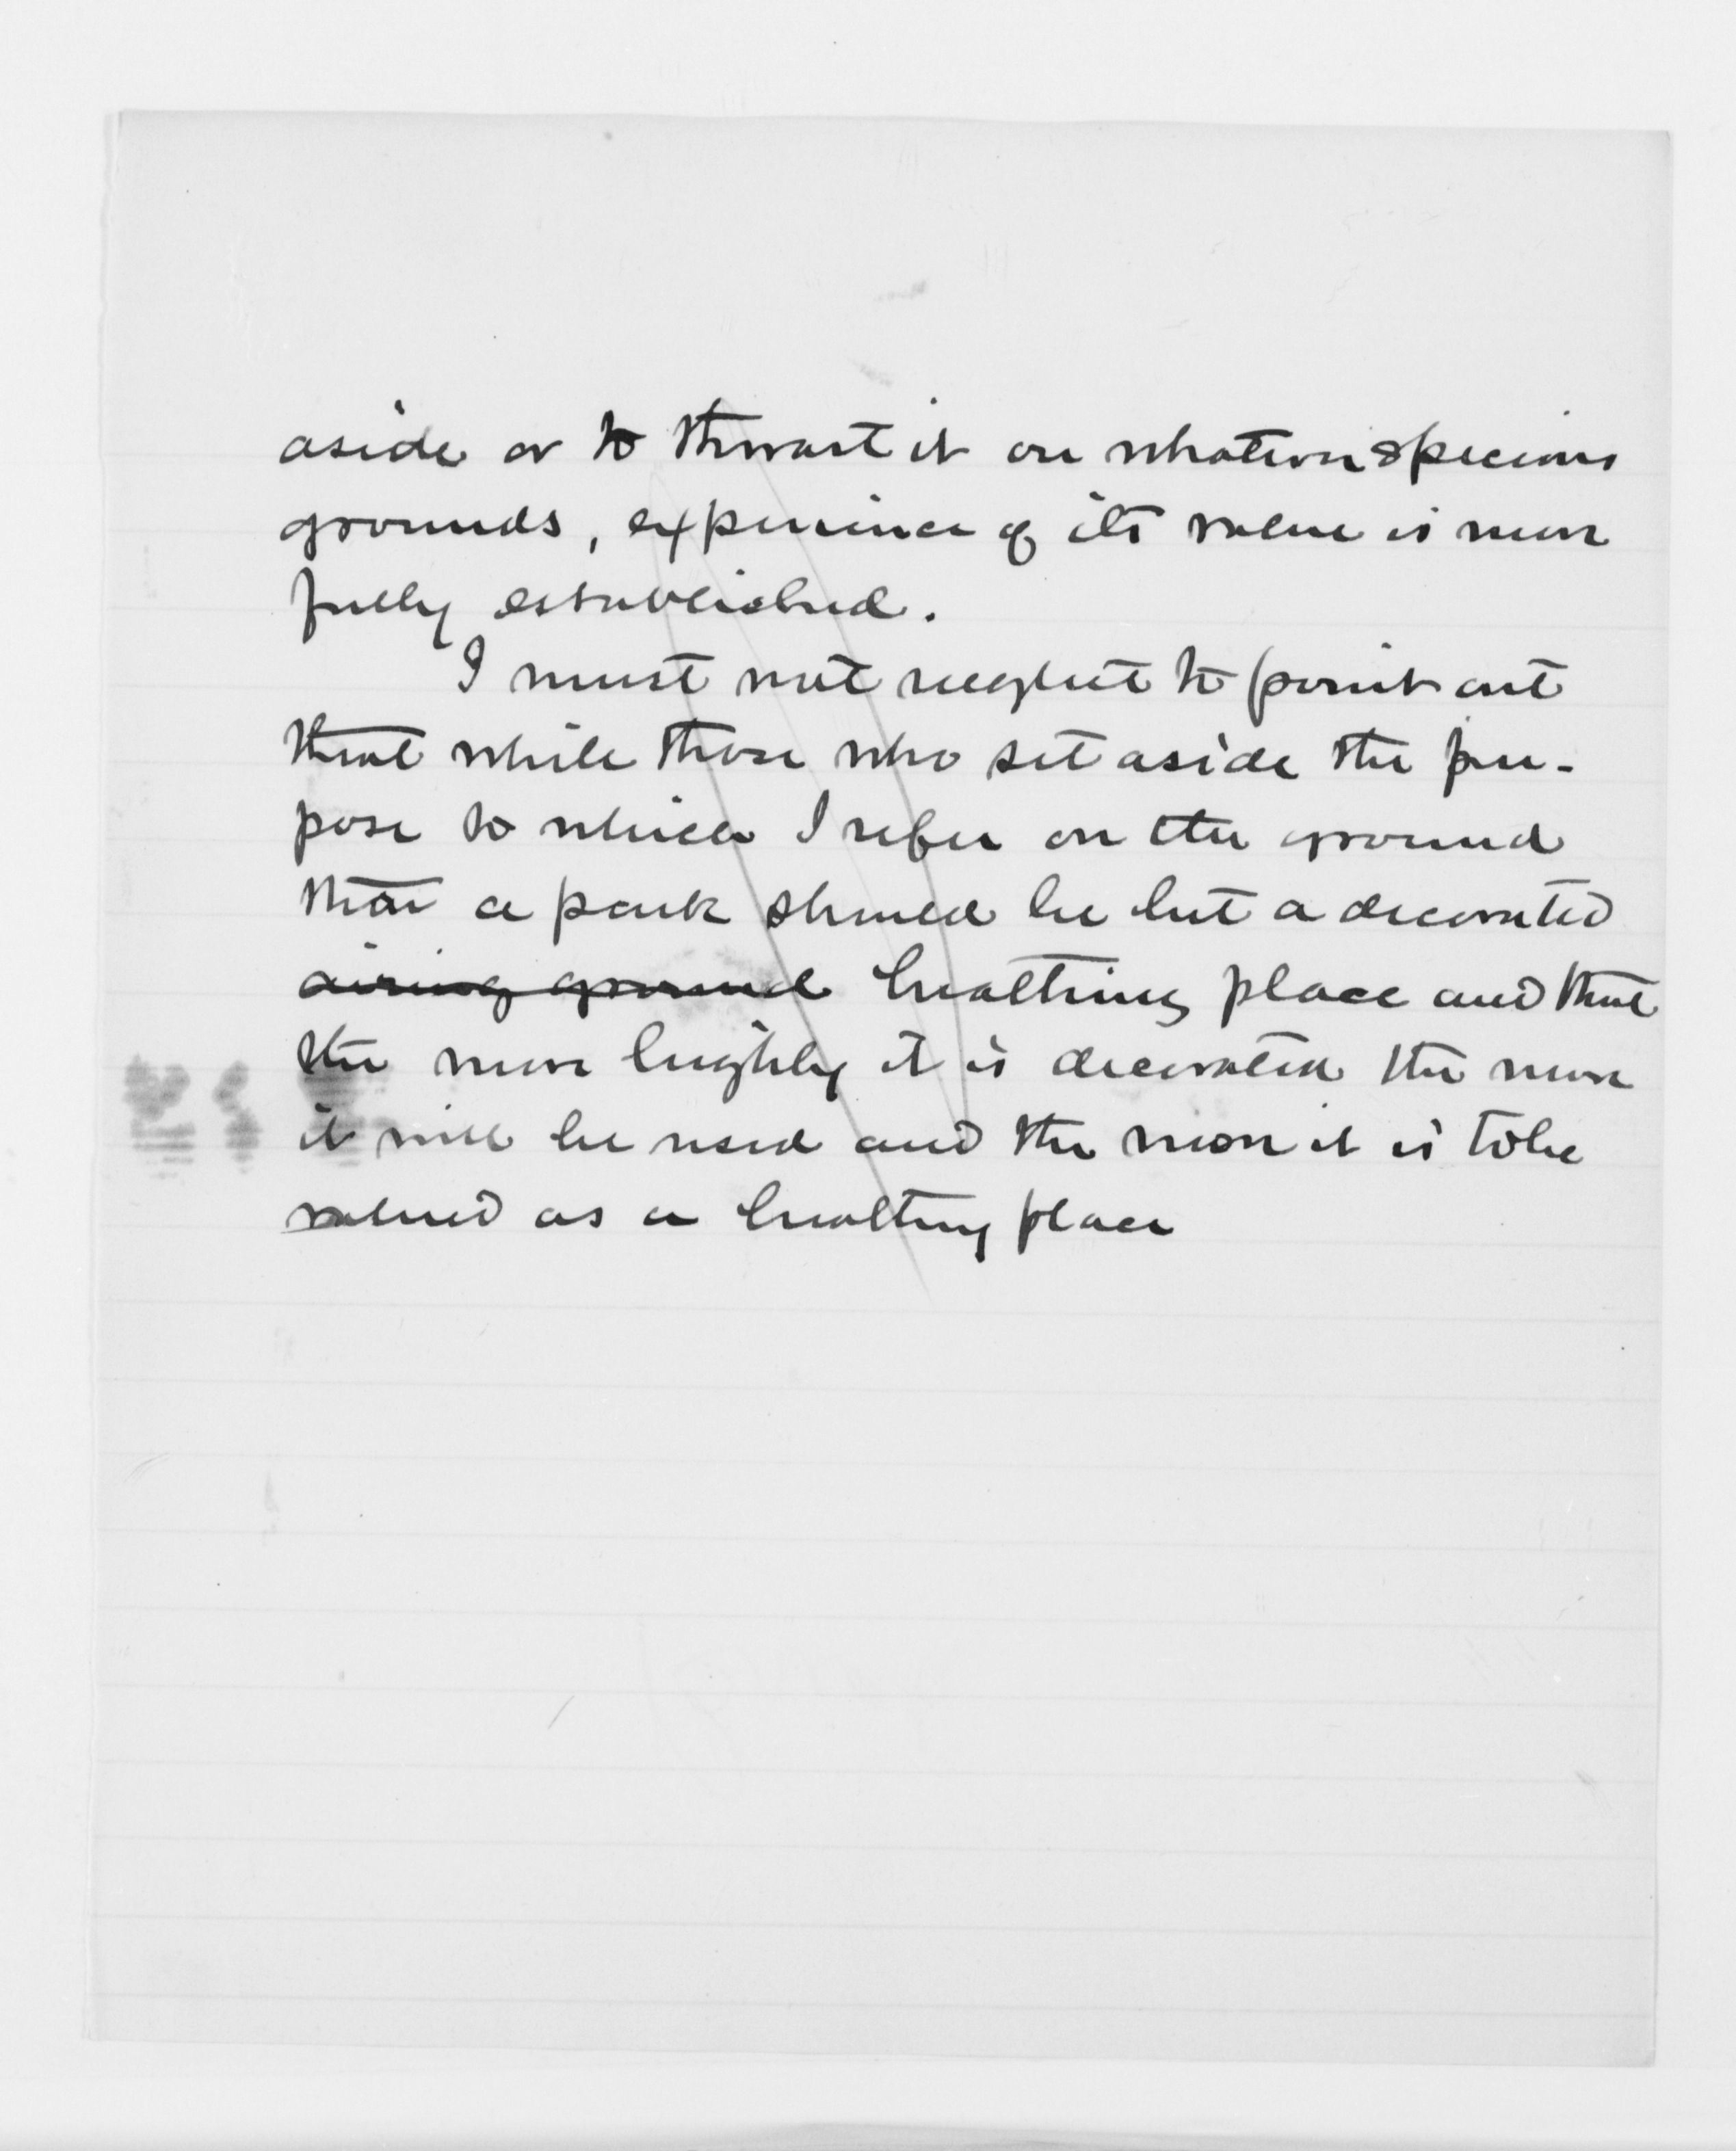 aside or to thwart it on whatever specious
grounds, experience of its value is more
fully established.
I must not neglect to point out
that while those who set aside the pur-
pose to which I refer on the ground
that a park should be but a decorated
airing ground breathing place and that
the more highly it is decorated the more
it will be used and the more it is to be
valued as a breathing place